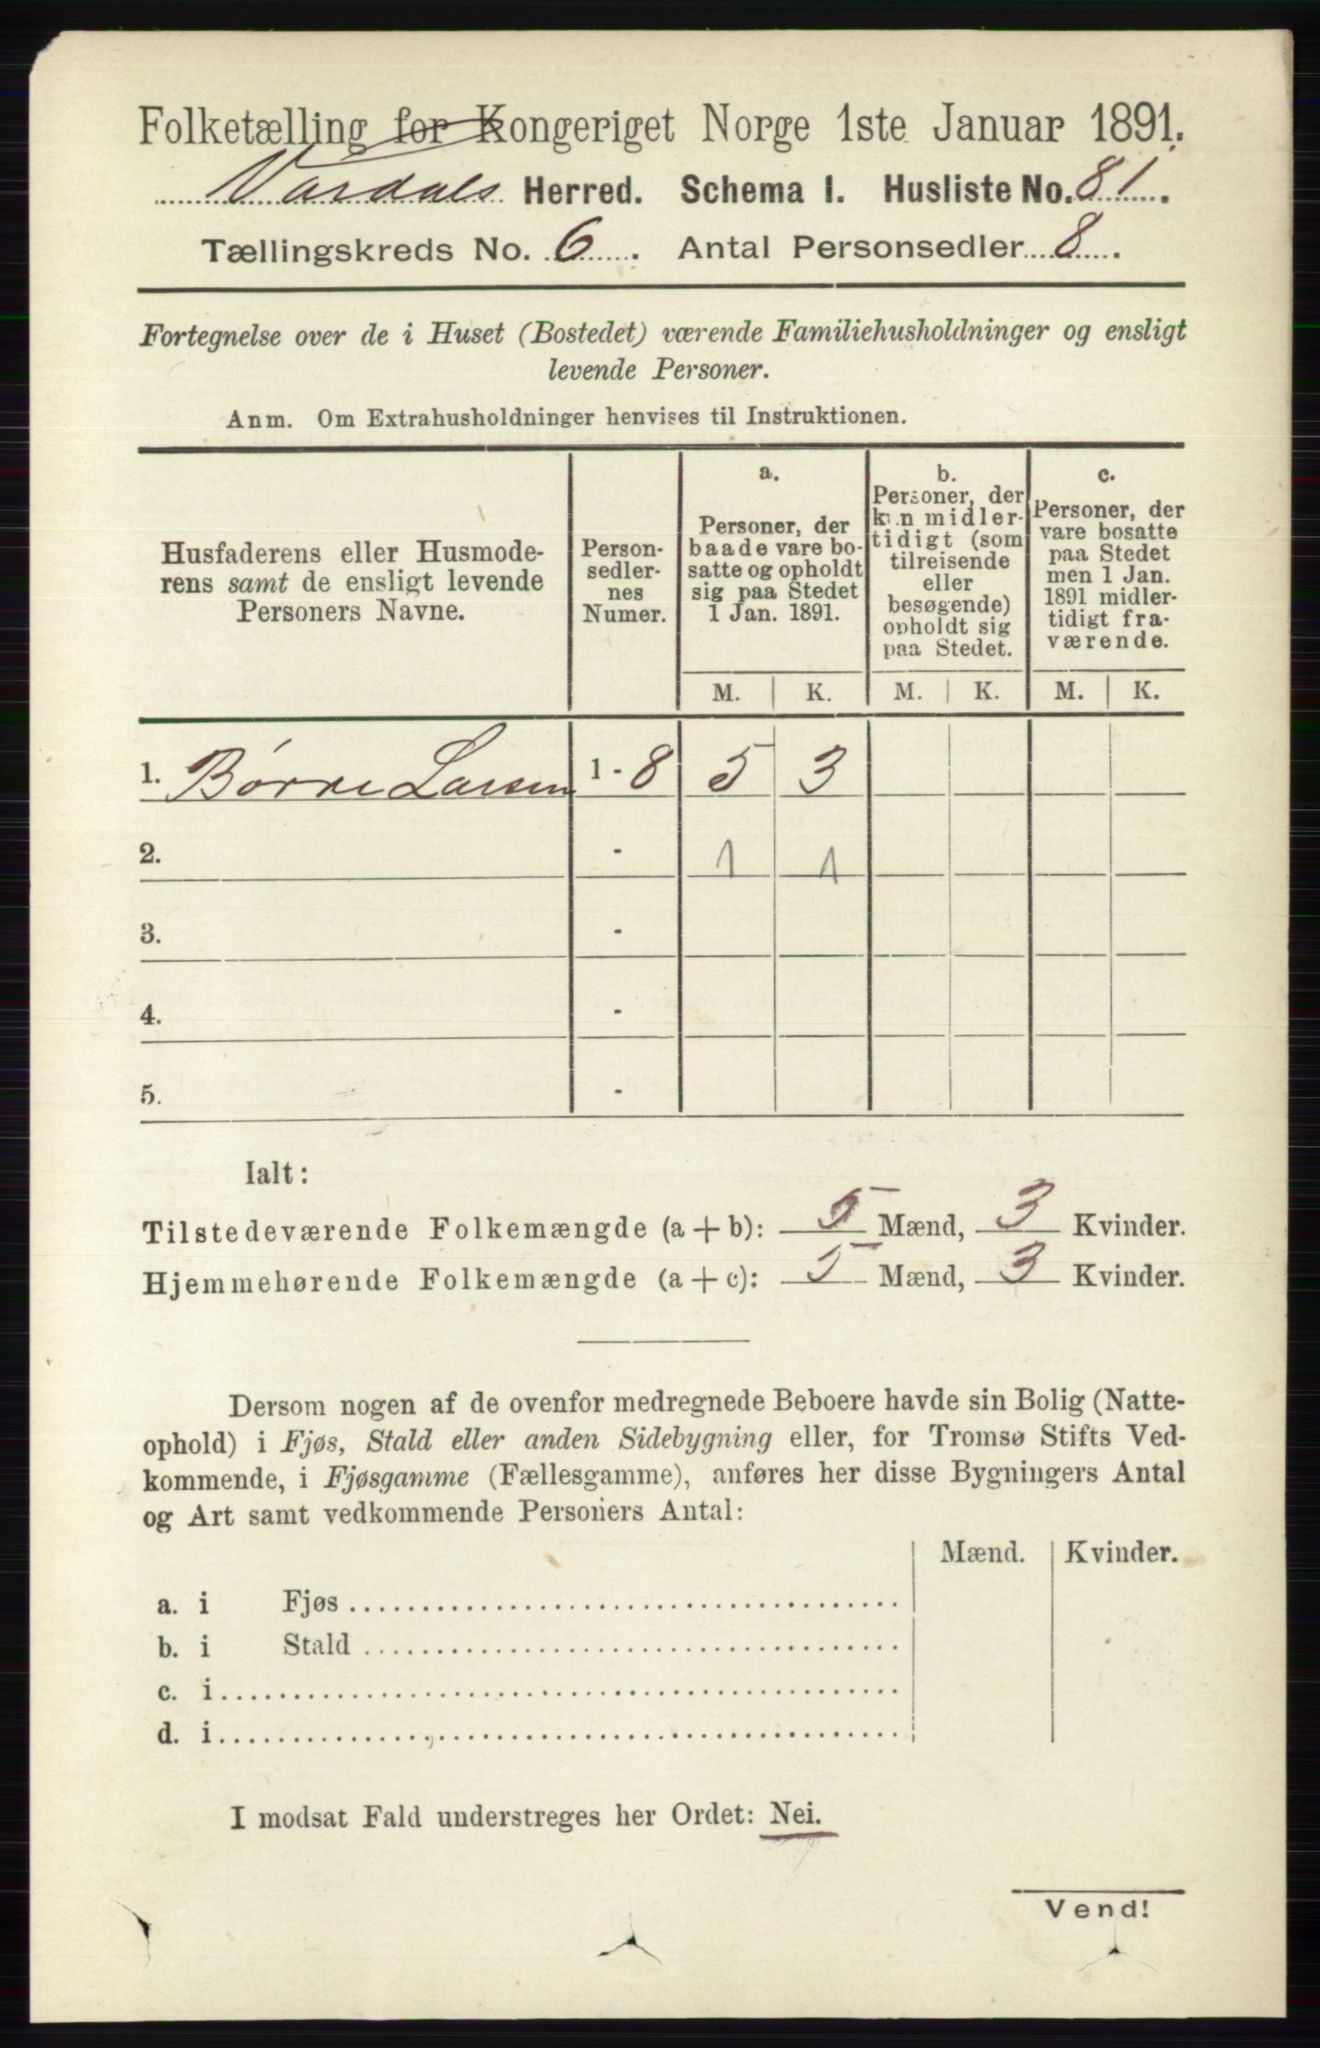 Folketælling for Kongeriget Norge 1ste Januar 1891.
Vardals Herred. Schema I. Husliste No. 81.
Tællingskreds No. 6. Antal Personsedler 8.
Fortegnelse over de i Huset (Bostedet) værende Familiehusholdninger og ensligt
levende Personer.
Anm. Om Extrahusholdninger henvises til Instruktionen.
Husfaderens eller Husmode-
rens samt de ensligt levende
Personers Navne.
Person-
sedler-
nes
Numer.
a.
Personer, der
baade vare bo-
satte og opholdt
sig paa Stedet
1 Jan. 1891.
b.
Personer, der
kun midler-
tidigt (som
tilreisende
eller
besøgende)
opholdt sig
paa Stedet.
c.
Personer, der
vare bosatte
paa Stedet
men 1 Jan.
1891 midler-
tidigt fra-
værende.
M. K. M. K. M. K.
1. Børre Larsen 1 - 8 5 3
2. - 1 1
3. -
4. -
5. -
Ialt:
Tilstedeværende Folkemængde (a + b): 5 Mænd, 3 Kvinder.
Hjemmehørende Folkemængde (a + c): 5 Mænd, 3 Kvinder.
Dersom nogen af de ovenfor medregnede Beboere havde sin Bolig (Natte-
ophold) i Fjøs, Stald eller anden Sidebygning eller, for Tromsø Stifts Ved-
kommende, i Fjøsgamme (Fællesgamme), anføres her disse Bygningers Antal
og Art samt vedkommende Personers Antal:
Mænd. Kvinder.
a. i Fjøs
b. i Stald
c. i
d. i
I modsat Fald understreges her Ordet: Nei.
Vend!